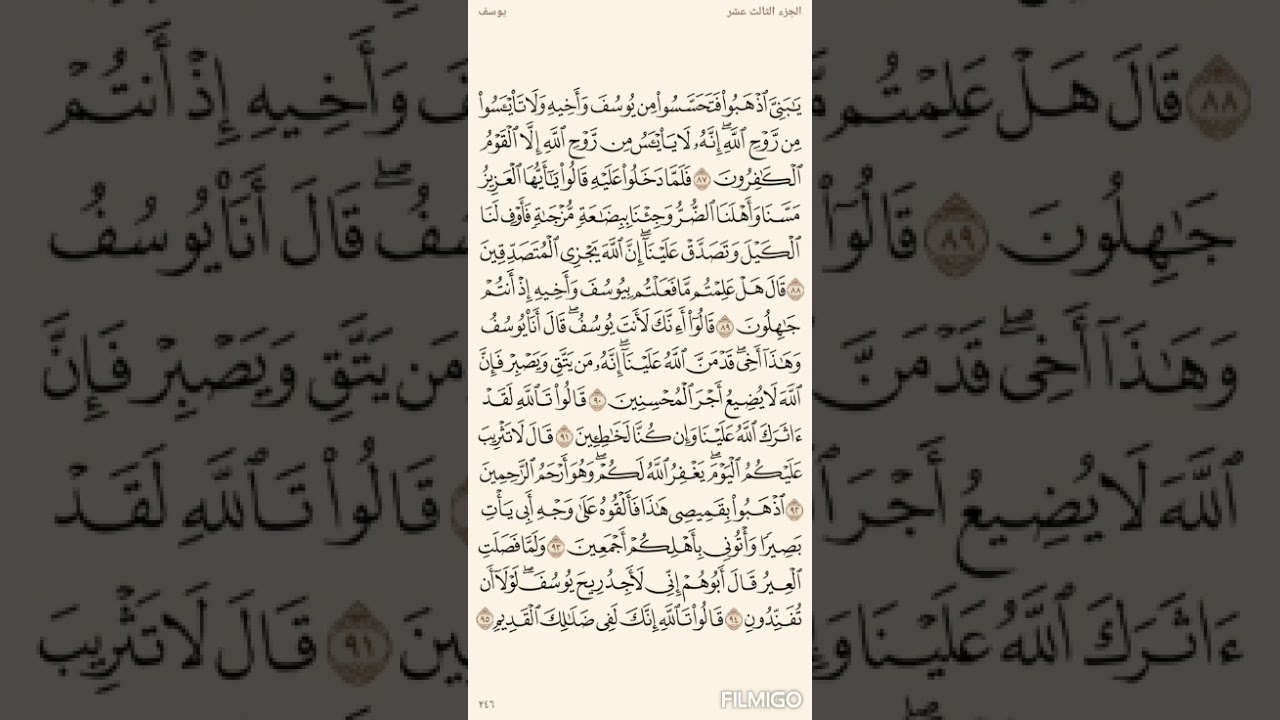 الجزء الثالث عشر
يوسف
يَٰبَنِيَّ ٱذۡهَبُواْ فَتَحَسَّسُواْ مِن يُوسُفَ وَأَخِيهِ وَلَا تَاْيۡـَٔسُواْ
مِن رَّوۡحِ ٱللَّهِۖ إِنَّهُۥ لَا يَاْيۡـَٔسُ مِن رَّوۡحِ ٱللَّهِ إِلَّا ٱلۡقَوۡمُ
ٱلۡكَٰفِرُونَ ٨٧ فَلَمَّا دَخَلُواْ عَلَيۡهِ قَالُواْ يَٰٓأَيُّهَا ٱلۡعَزِيزُ
مَسَّنَا وَأَهۡلَنَا ٱلضُّرُّ وَجِئۡنَا بِبِضَٰعَةٖ مُّزۡجَىٰةٖ فَأَوۡفِ لَنَا
ٱلۡكَيۡلَ وَتَصَدَّقۡ عَلَيۡنَآۖ إِنَّ ٱللَّهَ يَجۡزِي ٱلۡمُتَصَدِّقِينَ
٨٨ قَالَ هَلۡ عَلِمۡتُم مَّا فَعَلۡتُم بِيُوسُفَ وَأَخِيهِ إِذۡ أَنتُمۡ
جَٰهِلُونَ ٨٩ قَالُوٓاْ أَءِنَّكَ لَأَنتَ يُوسُفُۖ قَالَ أَنَا۠ يُوسُفُ
وَهَٰذَآ أَخِيۖ قَدۡ مَنَّ ٱللَّهُ عَلَيۡنَآۖ إِنَّهُۥ مَن يَتَّقِ وَيَصۡبِرۡ فَإِنَّ
ٱللَّهَ لَا يُضِيعُ أَجۡرَ ٱلۡمُحۡسِنِينَ ٩٠ قَالُواْ تَٱللَّهِ لَقَدۡ
ءَاثَرَكَ ٱللَّهُ عَلَيۡنَا وَإِن كُنَّا لَخَٰطِـِٔينَ ٩١ قَالَ لَا تَثۡرِيبَ
عَلَيۡكُمُ ٱلۡيَوۡمَۖ يَغۡفِرُ ٱللَّهُ لَكُمۡۖ وَهُوَ أَرۡحَمُ ٱلرَّٰحِمِينَ
٩٢ ٱذۡهَبُواْ بِقَمِيصِي هَٰذَا فَأَلۡقُوهُ عَلَىٰ وَجۡهِ أَبِي يَأۡتِ
بَصِيرٗا وَأۡتُونِي بِأَهۡلِكُمۡ أَجۡمَعِينَ ٩٣ وَلَمَّا فَصَلَتِ
ٱلۡعِيرُ قَالَ أَبُوهُمۡ إِنِّي لَأَجِدُ رِيحَ يُوسُفَۖ لَوۡلَآ أَن
تُفَنِّدُونِ ٩٤ قَالُواْ تَٱللَّهِ إِنَّكَ لَفِي ضَلَٰلِكَ ٱلۡقَدِيمِ ٩٥
٢٤٦
FILMIGO